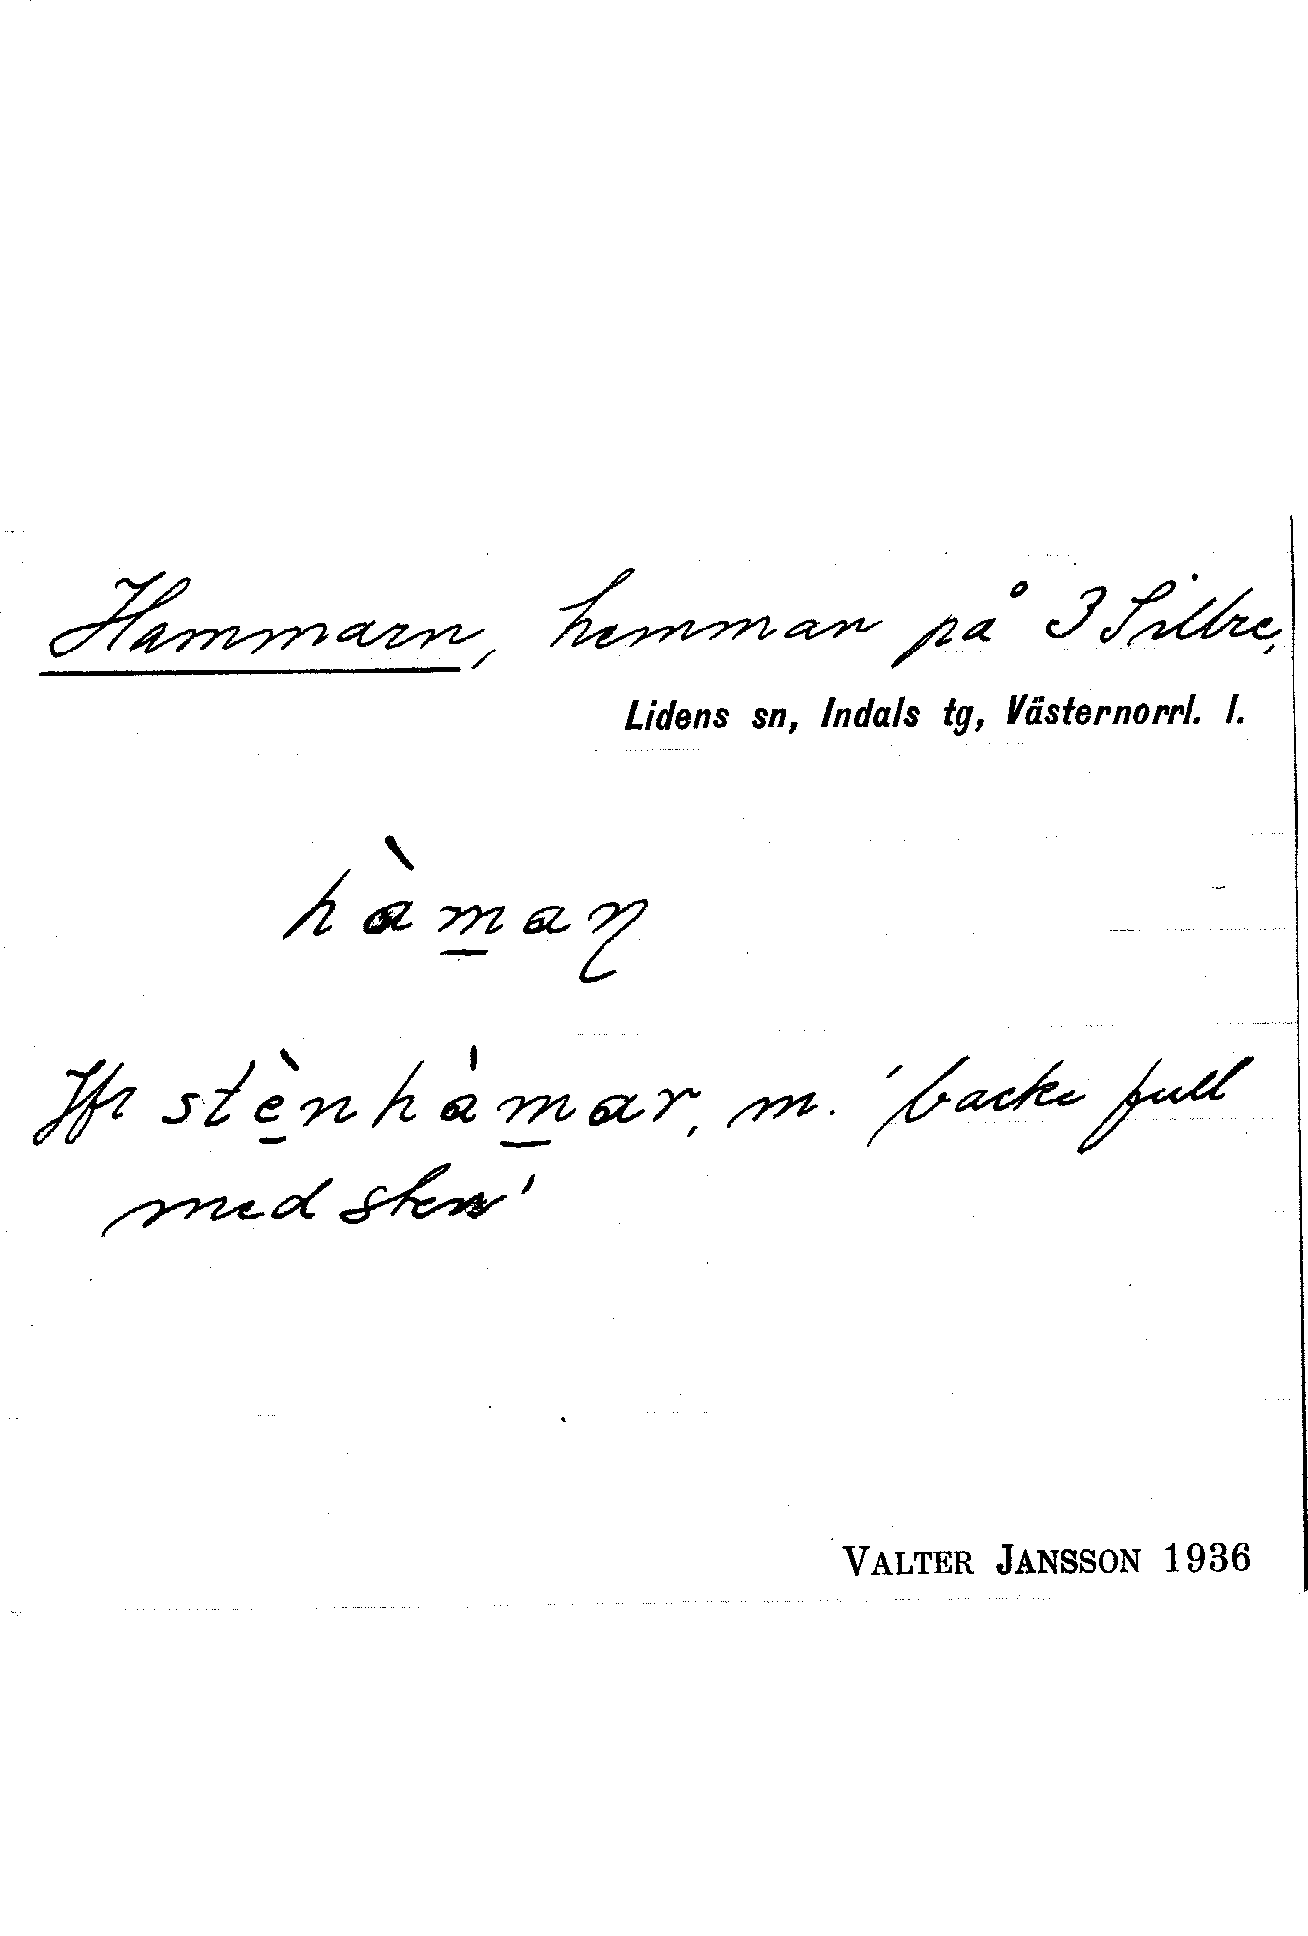 Hammarn, hemman på 3 Sillre,
Lidens sn, Indals tg, Västernorrl. l.
hàmaṇ
Jfr stènhámar, m. 'backe full
med sten'
VALTER JANSSON 1936